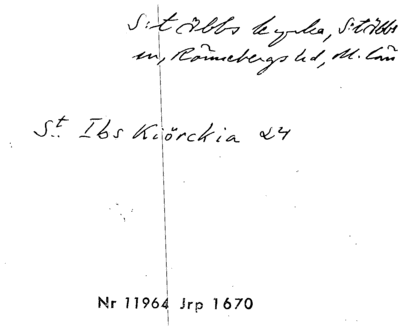 S:t Ibbs kyrka, S:t Ibbs
sn, Rönnebergs hd, M. län
St Ibs Kiörckia 24
Nr 11964 Jrp 1670